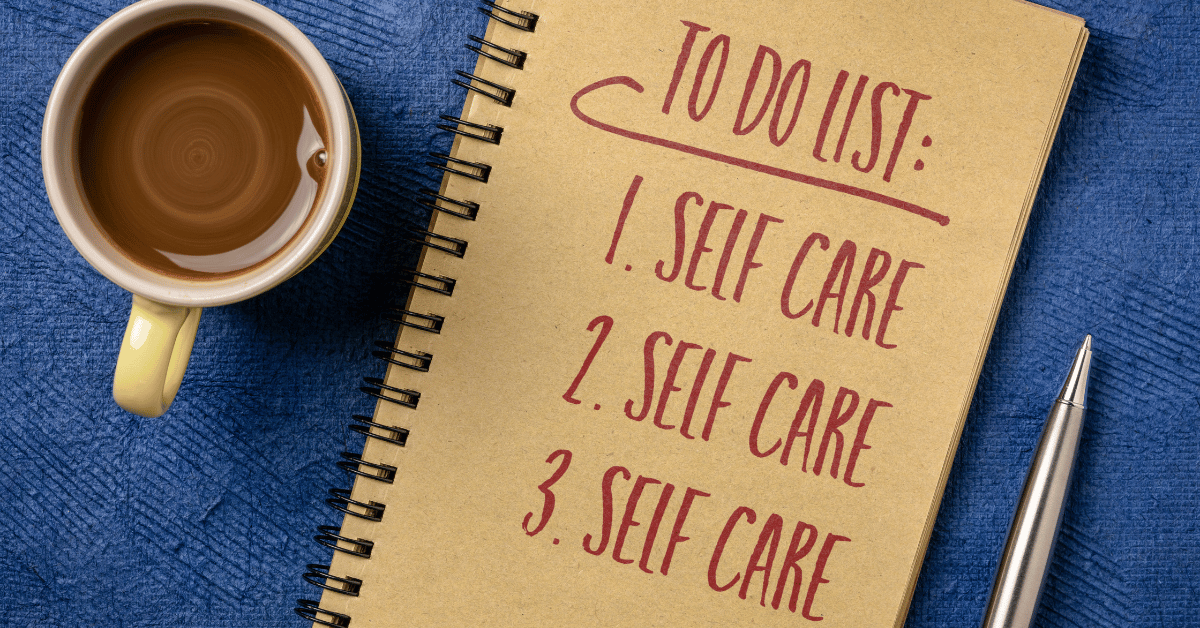 TO DO LIST:
1. SELF CARE
2. SELF CARE
3. SELF CARE